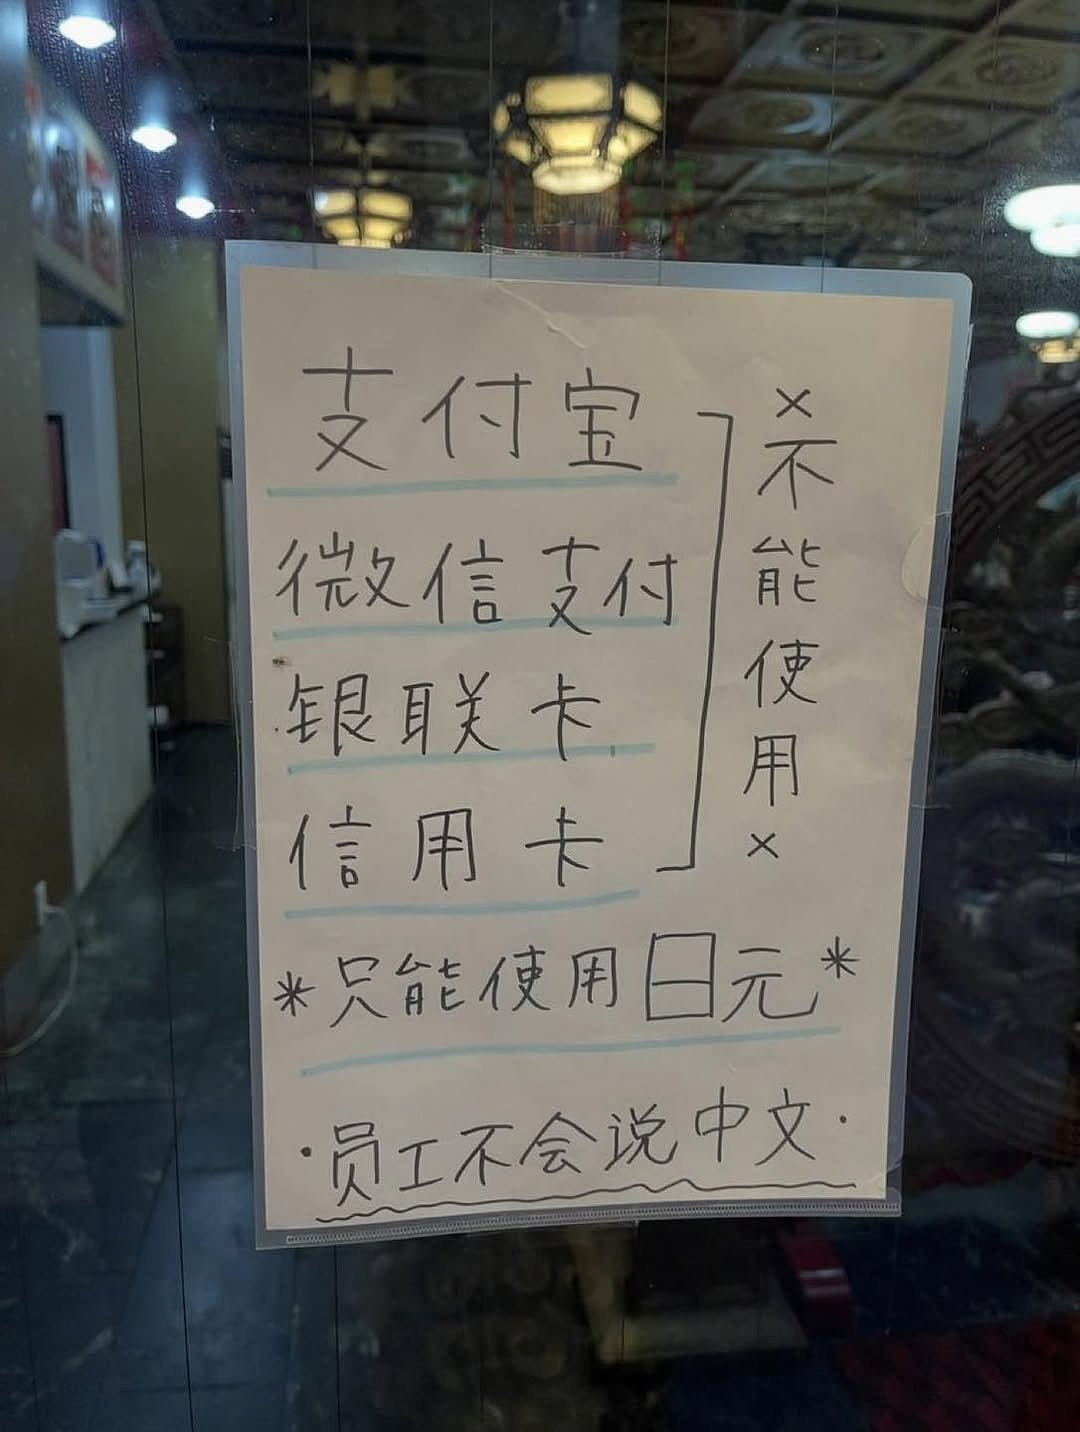 支付宝
微信支付
银联卡
信用卡
×不能使用×
*只能使用日元*
·员工不会说中文·